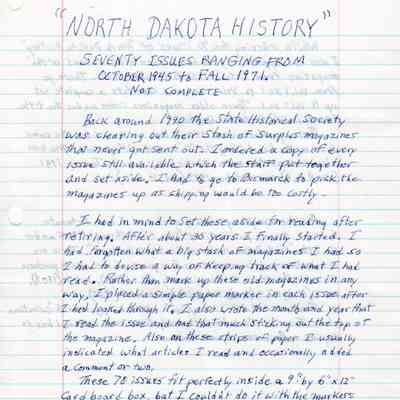 "NORTH DAKOTA HISTORY"
SEVENTY ISSUES RANGING FROM
OCTOBER 1945 to FALL 1971.
NOT COMPLETE
Back around 1990 the State Historical Society
was clearing out their Stash of Surplus magazines
that never got sent out. I ordered a copy of every
issue still available which the staff put together
and set aside. I had to go to Bismarck to pick the
magazines up as shipping would be too costly.
I had in mind to set these aside for reading after
retiring. After about 30 years I finally started. I
had forgotten what a big stash of magazines I had so
I had to devise a way of keeping track of what I had
read. Rather than mark up these old magazines in any
way, I placed a simple paper marker in each issue after
I had looked through it. I also wrote the month and year that
I read the issue and had that much sticking out the top of
the magazine. Also on these strips of paper I usually
indicated what articles I read and occasionally added
a comment or two.
These 70 issues fit perfectly inside a 9" by 6" x 12"
Card board box, but I couldn't do it with the markers